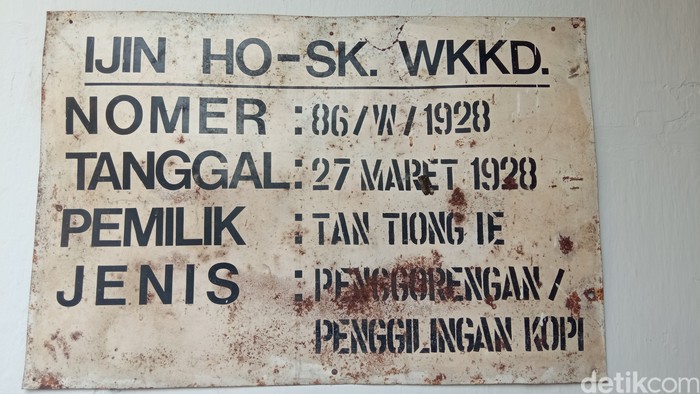 IJIN HO-SK. WKKD.
NOMER : 86/W/1928
TANGGAL : 27 MARET 1928
PEMILIK : TAN TIONG IE
JENIS : PENGGORENGAN /
PENGGILINGAN KOPI
detikcom